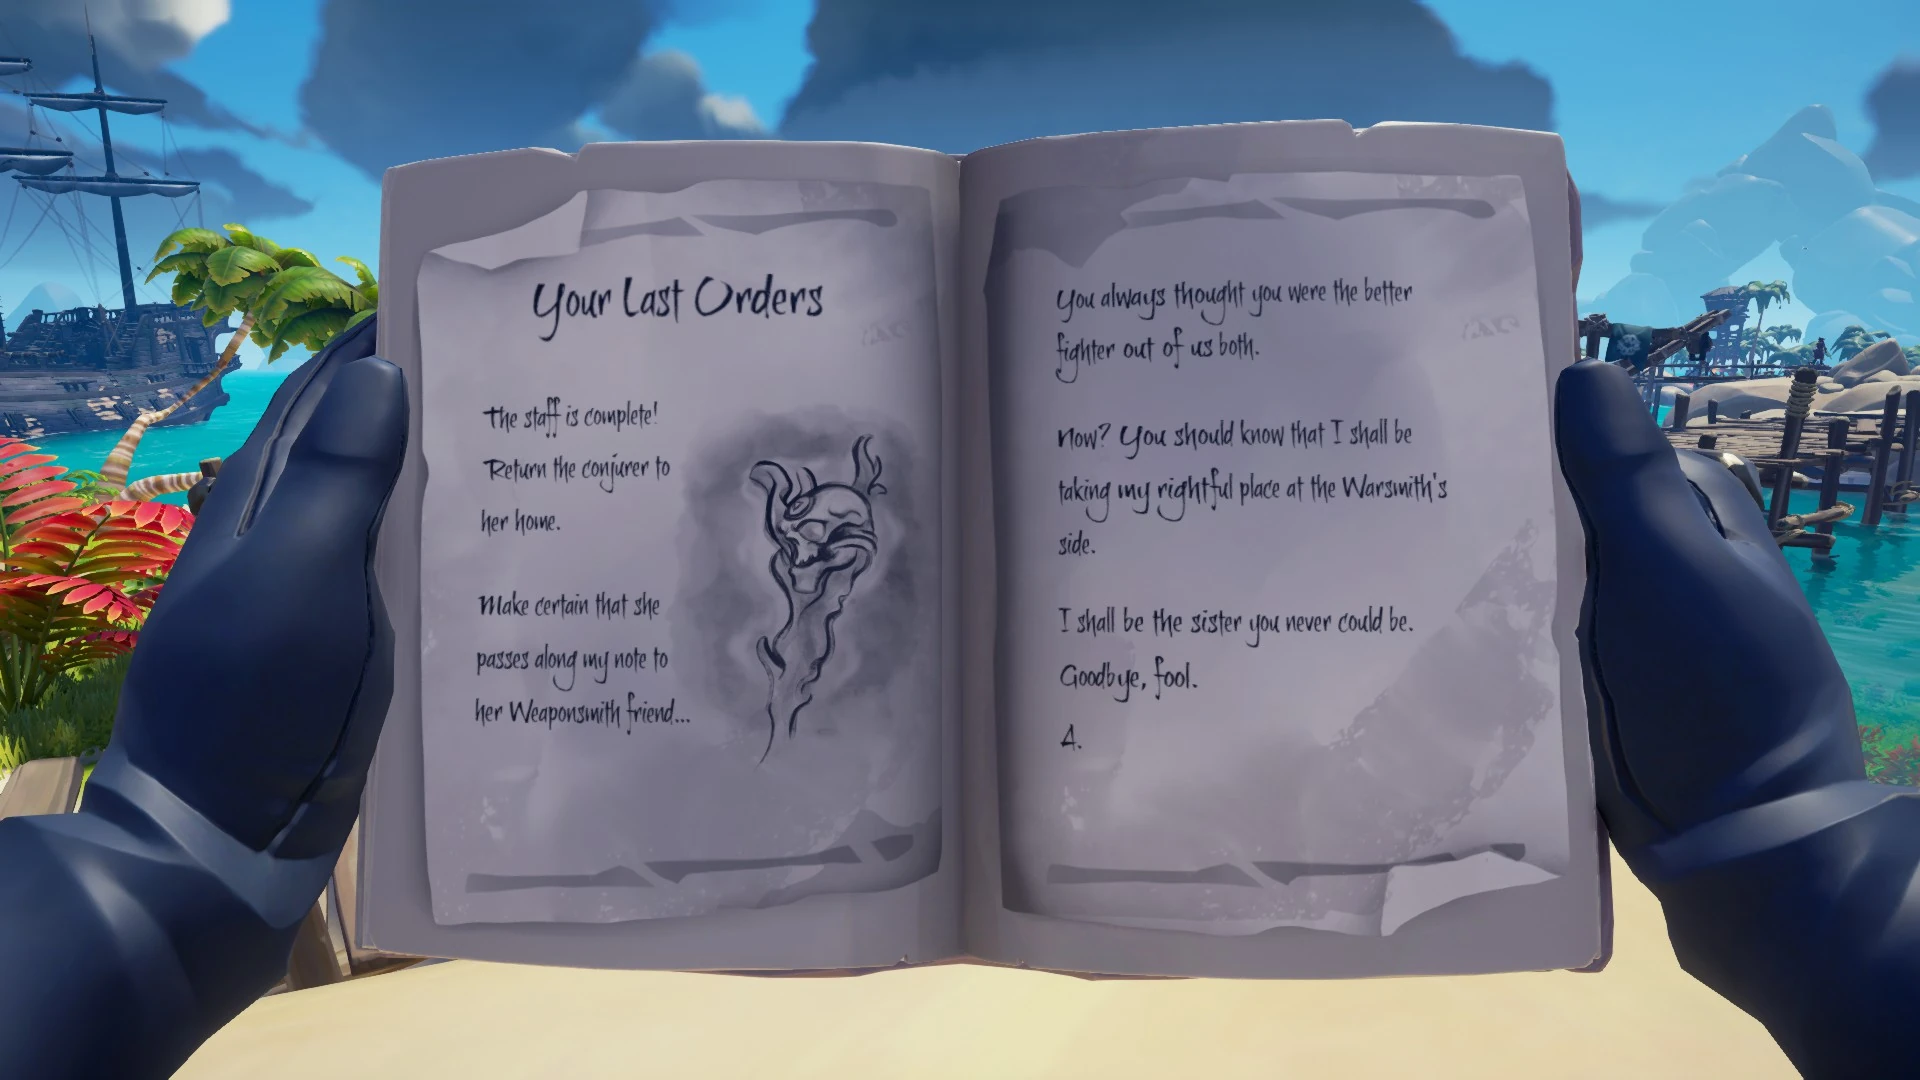 Your Last Orders
The staff is complete!
Return the conjurer to
her home.
Make certain that she
passes along my note to
her Weaponsmith friend...
You always thought you were the better
fighter out of us both.
Now? You should know that I shall be
taking my rightful place at the Warsmith's
side.
I shall be the sister you never could be.
Goodbye, fool.
A.